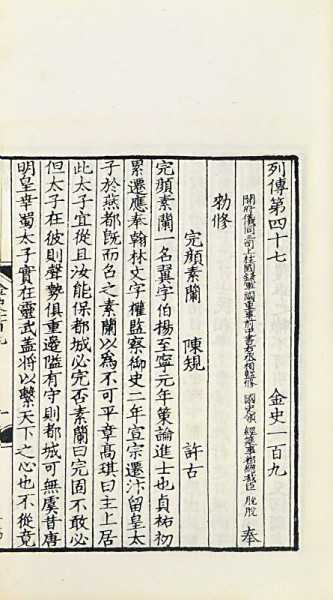 列傳第四十七 金史一百九
開府儀同三司上柱國錄軍國重事前中書右丞相監修 國史領 經筵事都總裁臣 脫脫 奉
勑修
完顔素蘭 陳規 許古
完顔素蘭一名翼字伯揚至寧元年策論進士也貞祐初
累遷應奉翰林文字權監察御史二年宣宗遷汴留皇太
子於燕都旣而召之素蘭以爲不可平章高琪曰主上居
此太子宜從且汝能保都城必完否素蘭曰完固不敢必
但太子在彼則聲勢俱重邊隘有守則都城可無虞昔唐
明皇幸蜀太子實在靈武蓋將以繫天下之心也不從竟